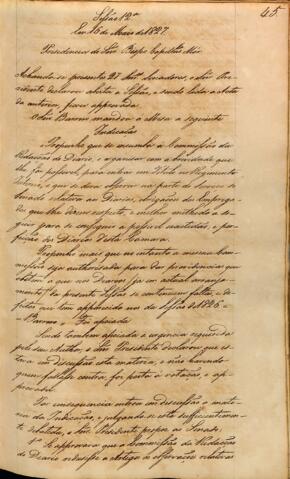 45.
Sessão 12ª
Em 16 de Maio de 1827.
Presidencia do Snr. Bispo Capellão Mór.
Achando-se presentes 27 Snrs. Senadores, o Snr. Pre-
sidente declarou aberta a Sessão, e sendo lida a Acta
da anterior, ficou approvada.
O Snr. Barroso mandou á Mesa a seguinte
Indicação
Proponho que se incumba á Commissão da
Redacção do Diario, o organisar com a brevidade que
lhe for possivel, para entrar em Titulo no Regimento
interno, o que se deve observar na parte do serviço do
Senado relativa ao Diario, obrigações dos Emprega-
dos que lhe dizem respeito, e melhor methodo a se-
guir para se conseguir a possivel exactidão, e per-
feição dos Diarios desta Camara.
Proponho mais que no entanto a mesma Com-
missão seja authorisada para dar providencias que
obstem a que nos Diarios (já em actual arranja-
mento) da presente Sessão se continuem faltas, e de-
feitos que tem apparecido nos da Sessão de 1826. =
Barroso = Foi apoiada
Sendo tambem apoiada a urgencia requerida
pelo seu Author, o Snr. Presidente declarou que es-
tava em discussão esta materia, e não havendo
quem fallasse contra foi posta á votação, e ap-
provada.
Por consequencia entrou em discussão a mate-
ria da Indicação, e julgando-se esta sufficientemen-
te debatida, o Snr. Presidente propoz ao Senado:
1º Se approvava que a Commissão da Redacção
do Diario